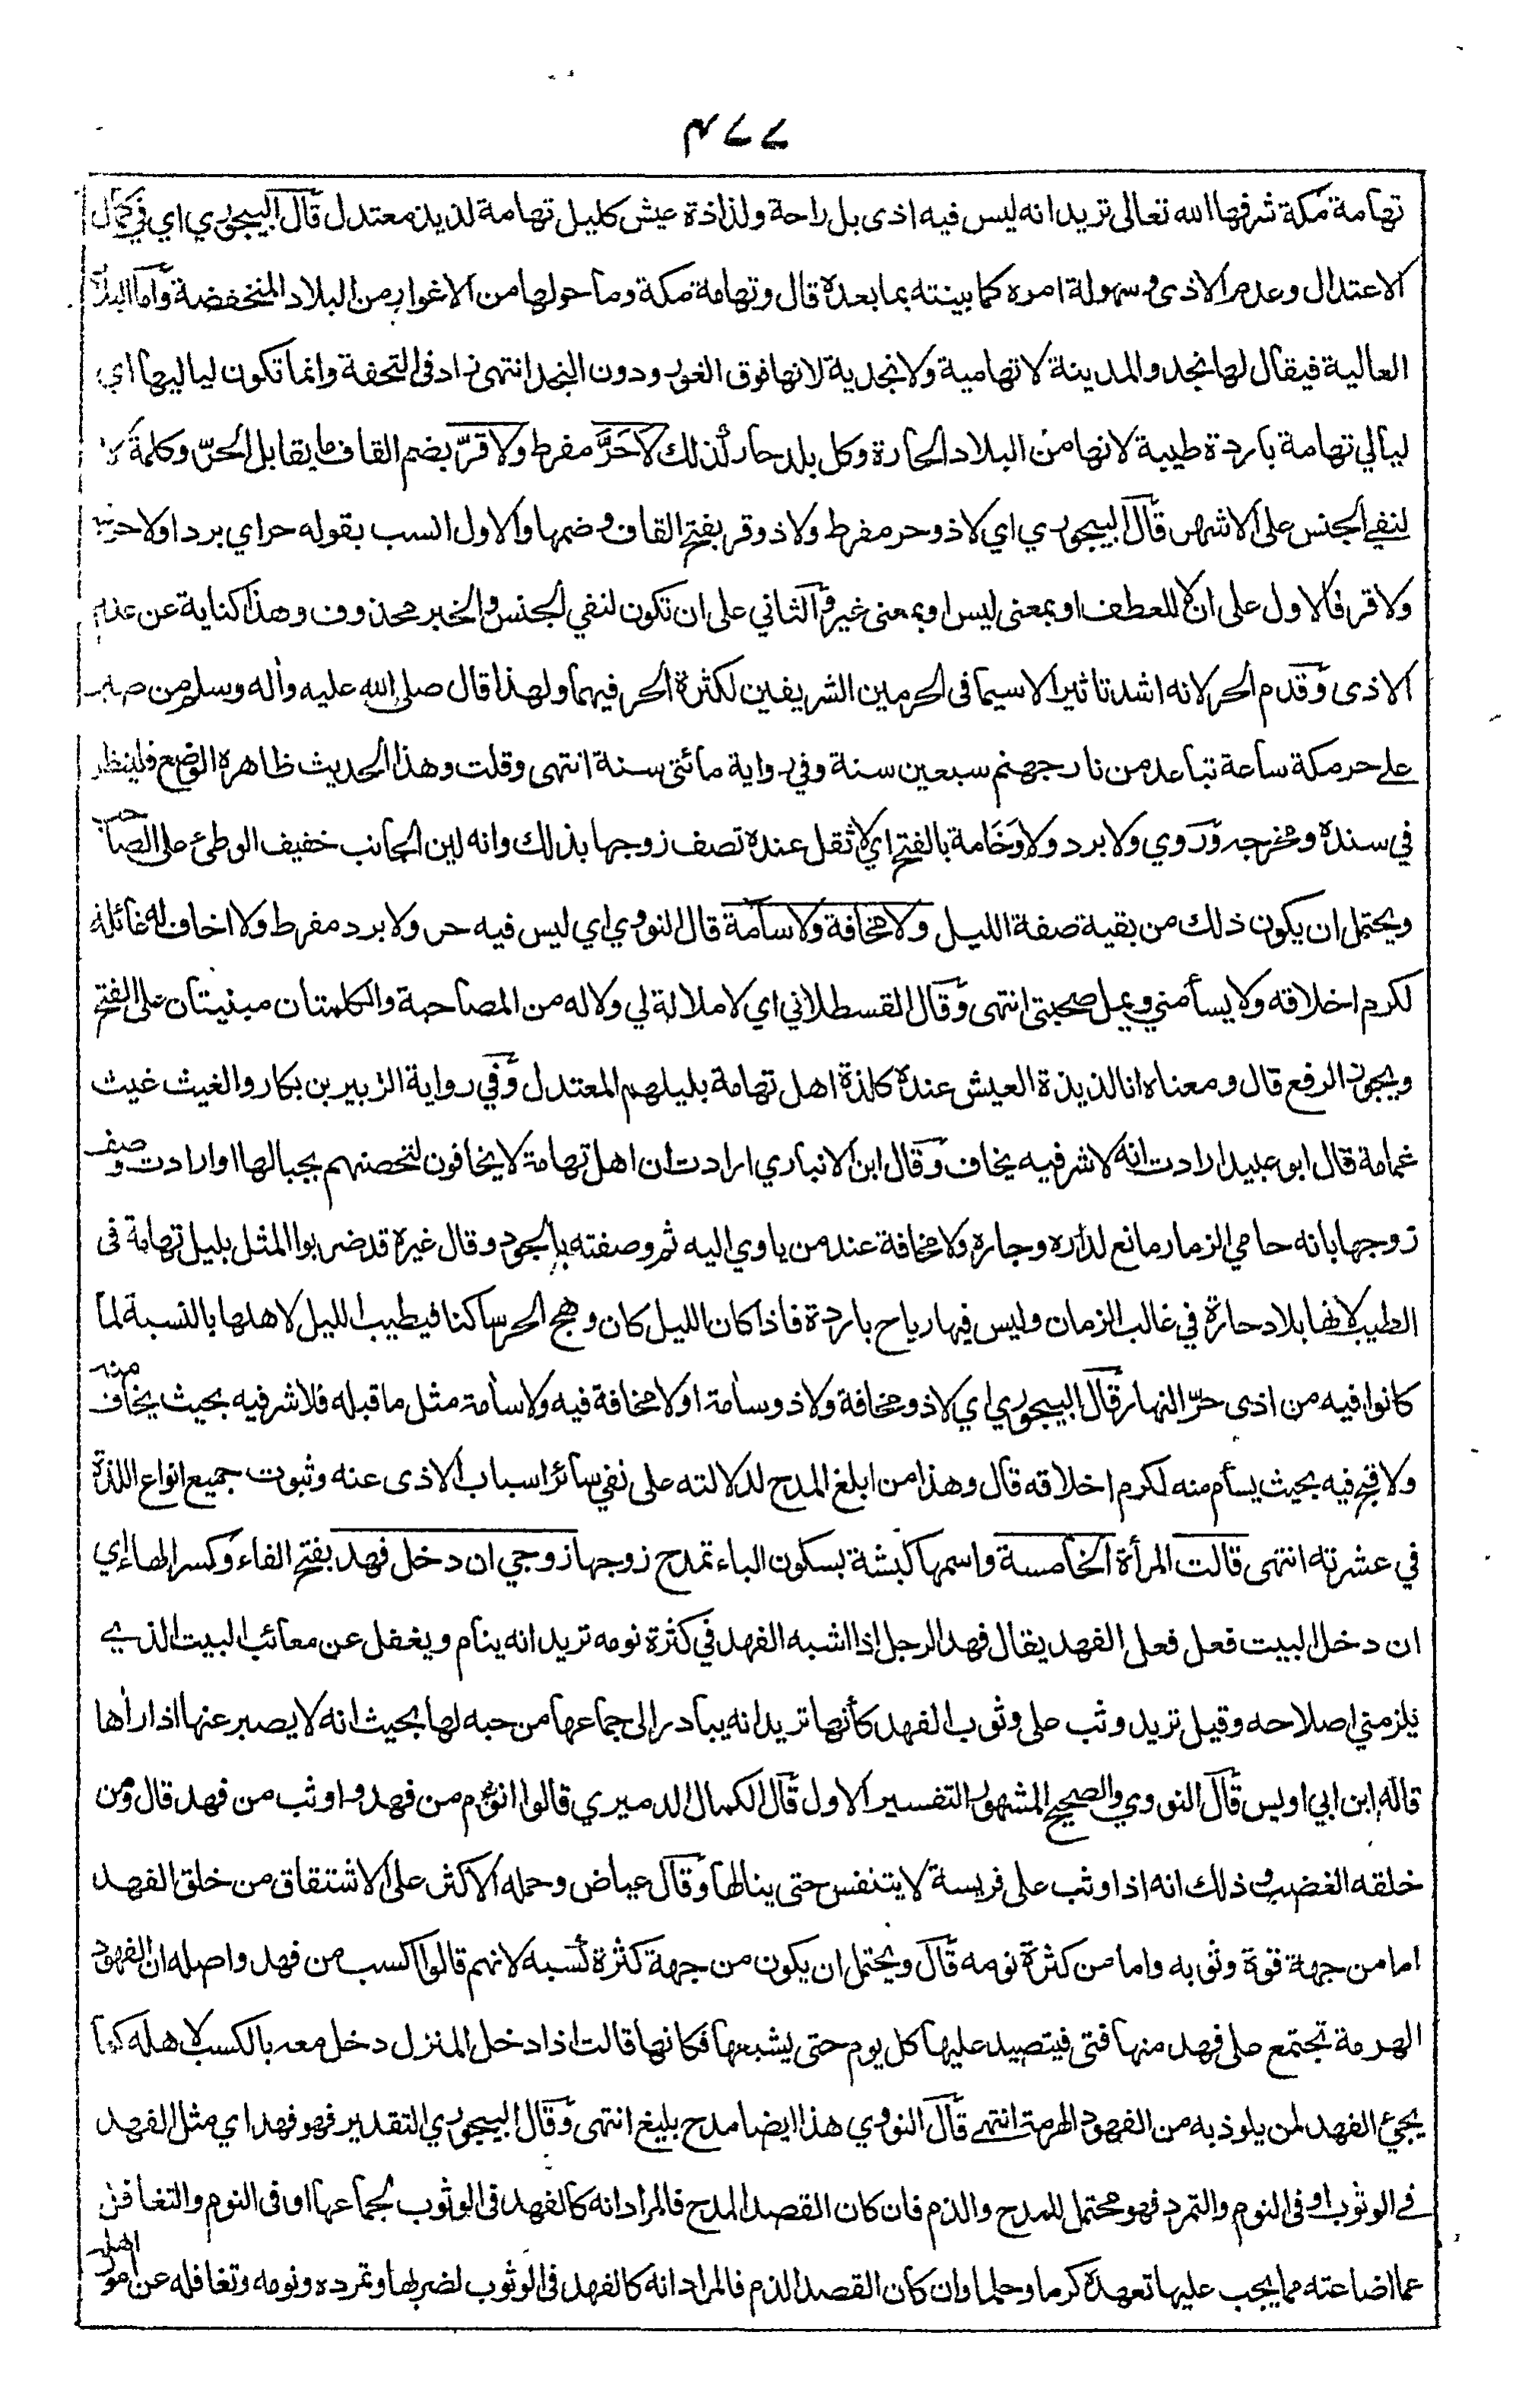 ٣٧٧
تهامة مكة شرفها الله تعالى تريد انه ليس فيه اذى بل راحة ولذاذة عيش كليل تهامة لذيذ معتدل قال البيجوري اي في كمال
الاعتدال وعدم الاذى وسهولة امره كما بينته بما بعده قال وتهامة مكة وما حولها من الاغوار من البلاد المنخفضة واما البلاد
العالية فيقال لها نجد والمدينة لا تهامية ولا نجدية لانها فوق الغور ودون النجد انتهى زاد في التحفة وانما تكون لياليها اي
ليالي تهامة باردة طيبة لانها من البلاد الحارة وكل بلد حار كذلك لا حَرَّ مفرط ولا قرّ بضم القاف ما يقابل الحرّ وكلمة لا
لنفي الجنس على الاشهر قال البيجوري اي لا ذو حر مفرط ولا ذو قر بفتح القاف وضمها والاول انسب بقوله حر اي برد او لا حر فيه
ولا قر فالاول على ان لا للعطف او بمعنى ليس او بمعنى غير والثاني على ان تكون لنفي الجنس والخبر محذوف وهذا كناية عن عدم
الاذى وقدم الحر لانه اشد تاثيرا لا سيما في الحرمين الشريفين لكثرة الحر فيهما ولهذا قال صلى الله عليه وأله وسلم من صبر
على حر مكة ساعة تباعد من نار جهنم سبعين سنة وفي رواية مائتي سنة انتهى وقلت وهذا الحديث ظاهره الوضع فلينظر
في سنده ومخرجه وروي ولا برد ولا وَخَامة بالفتح اي لا ثقل عنده تصف زوجها بذلك وانه لين الجانب خفيف الوطئ على الصاحب
ويحتمل ان يكون ذلك من بقية صفة الليل ولا مخافة ولا سأمة قال النووي اي ليس فيه حر ولا برد مفرط ولا اخاف له غائلة
لكرم اخلاقه ولا يسأمني ويمل صحبتي انتهى وقال القسطلاني اي لا ملالة لي ولا له من المصاحبة والكلمتان مبنيتان على الفتح
ويجوز الرفع قال ومعناه انا لذيذة العيش عنده كلذة اهل تهامة بليلهم المعتدل وفي رواية الزبير بن بكار والغيث غيث
غمامة قال ابو عبيد ارادت انه لا شر فيه يخاف وقال ابن الانباري ارادت ان اهل تهامة لا يخافون لتحصنهم بجبالها او ارادت وصف
زوجها بانه حامي الزمار مانع لداره وجاره ولا مخافة عند من ياوي اليه ثم وصفته بالجود وقال غيره قد ضربوا المثل بليل تهامة في
الطيب لانها بلاد حارة في غالب الزمان وليس فيها رياح باردة فاذا كان الليل كان وهج الحر ساكنا فيطيب الليل لاهلها بالنسبة لما
كانوا فيه من اذى حرّ النهار قال البيجوري اي لا ذو مخافة ولا ذو سأمة او لا مخافة فيه ولا سأمة مثل ما قبله فلا شر فيه بحيث يخاف منه
ولا قبح فيه بحيث يسأم منه لكرم اخلاقه قال وهذا من ابلغ المدح لدلالته على نفي سائر اسباب الاذى عنه وثبوت جميع انواع اللذة
في عشرته انتهى قالت المرأة الخامسة واسمها كبشة بسكون الباء تمدح زوجها زوجي ان دخل فهد بفتح الفاء وكسر الهاء اي
ان دخل البيت فعل فعل الفهد يقال فهد الرجل اذا اشبه الفهد في كثرة نومه تريد انه ينام ويغفل عن معائب البيت الذي
يلزمني اصلاحه وقيل تريد وثب علي وثوب الفهد كأنها تريد انه يبادر الى جماعها من حبه لها بحيث انه لا يصبر عنها اذا راها
قاله ابن ابي اويس قال النووي والصحيح المشهور التفسير الاول قال الكمال الدميري قالوا انوم من فهد واوثب من فهد قال ومن
خلقه الغضب وذلك انه اذا وثب على فريسة لا يتنفس حتى ينالها وقال عياض وحمله الاكثر على الاشتقاق من خلق الفهد
اما من جهة قوة وثوبه واما من كثرة نومه قال ويحتمل ان يكون من جهة كثرة كسبه لانهم قالوا اكسب من فهد واصله ان الفهود
الهرمة تجتمع على فهد منها فتى فيتصيد عليها كل يوم حتى يشبعها فكانها قالت اذا دخل المنزل دخل معه بالكسب لاهله كما
يجيئ الفهد لمن يلوذ به من الفهود الهرمة انتهى قال النووي هذا ايضا مدح بليغ انتهى وقال البيجوري التقدير فهو فهد اي مثل الفهد
في الوثوب او في النوم والتمرد فهو محتمل للمدح والذم فان كان القصد المدح فالمراد انه كالفهد في الوثوب لجماعها او في النوم والتغافل
عما اضاعته مما يجب عليها تعهده كرما وحلما وان كان القصد الذم فالمراد انه كالفهد في الوثوب لضربها وتمرده ونومه وتغافله عن امور اهله